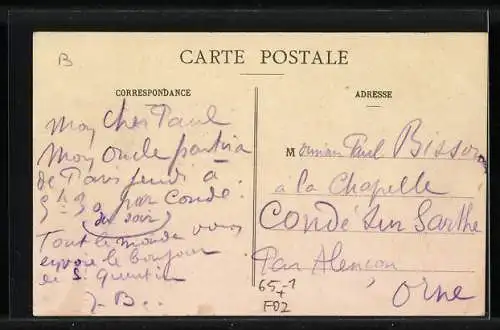 B
CARTE POSTALE
CORRESPONDANCE
ADRESSE
Mon cher Paul
Mon oncle partira
de Paris jeudi à
5h 30 pour Condé
(du soir)
Tout le monde vous
envoie le bonjour
de St Quentin
J. B.
Monsieur Paul Bisson
à la Chapelle
Condé sur Sarthe
Par Alençon
Orne
65-1
F02